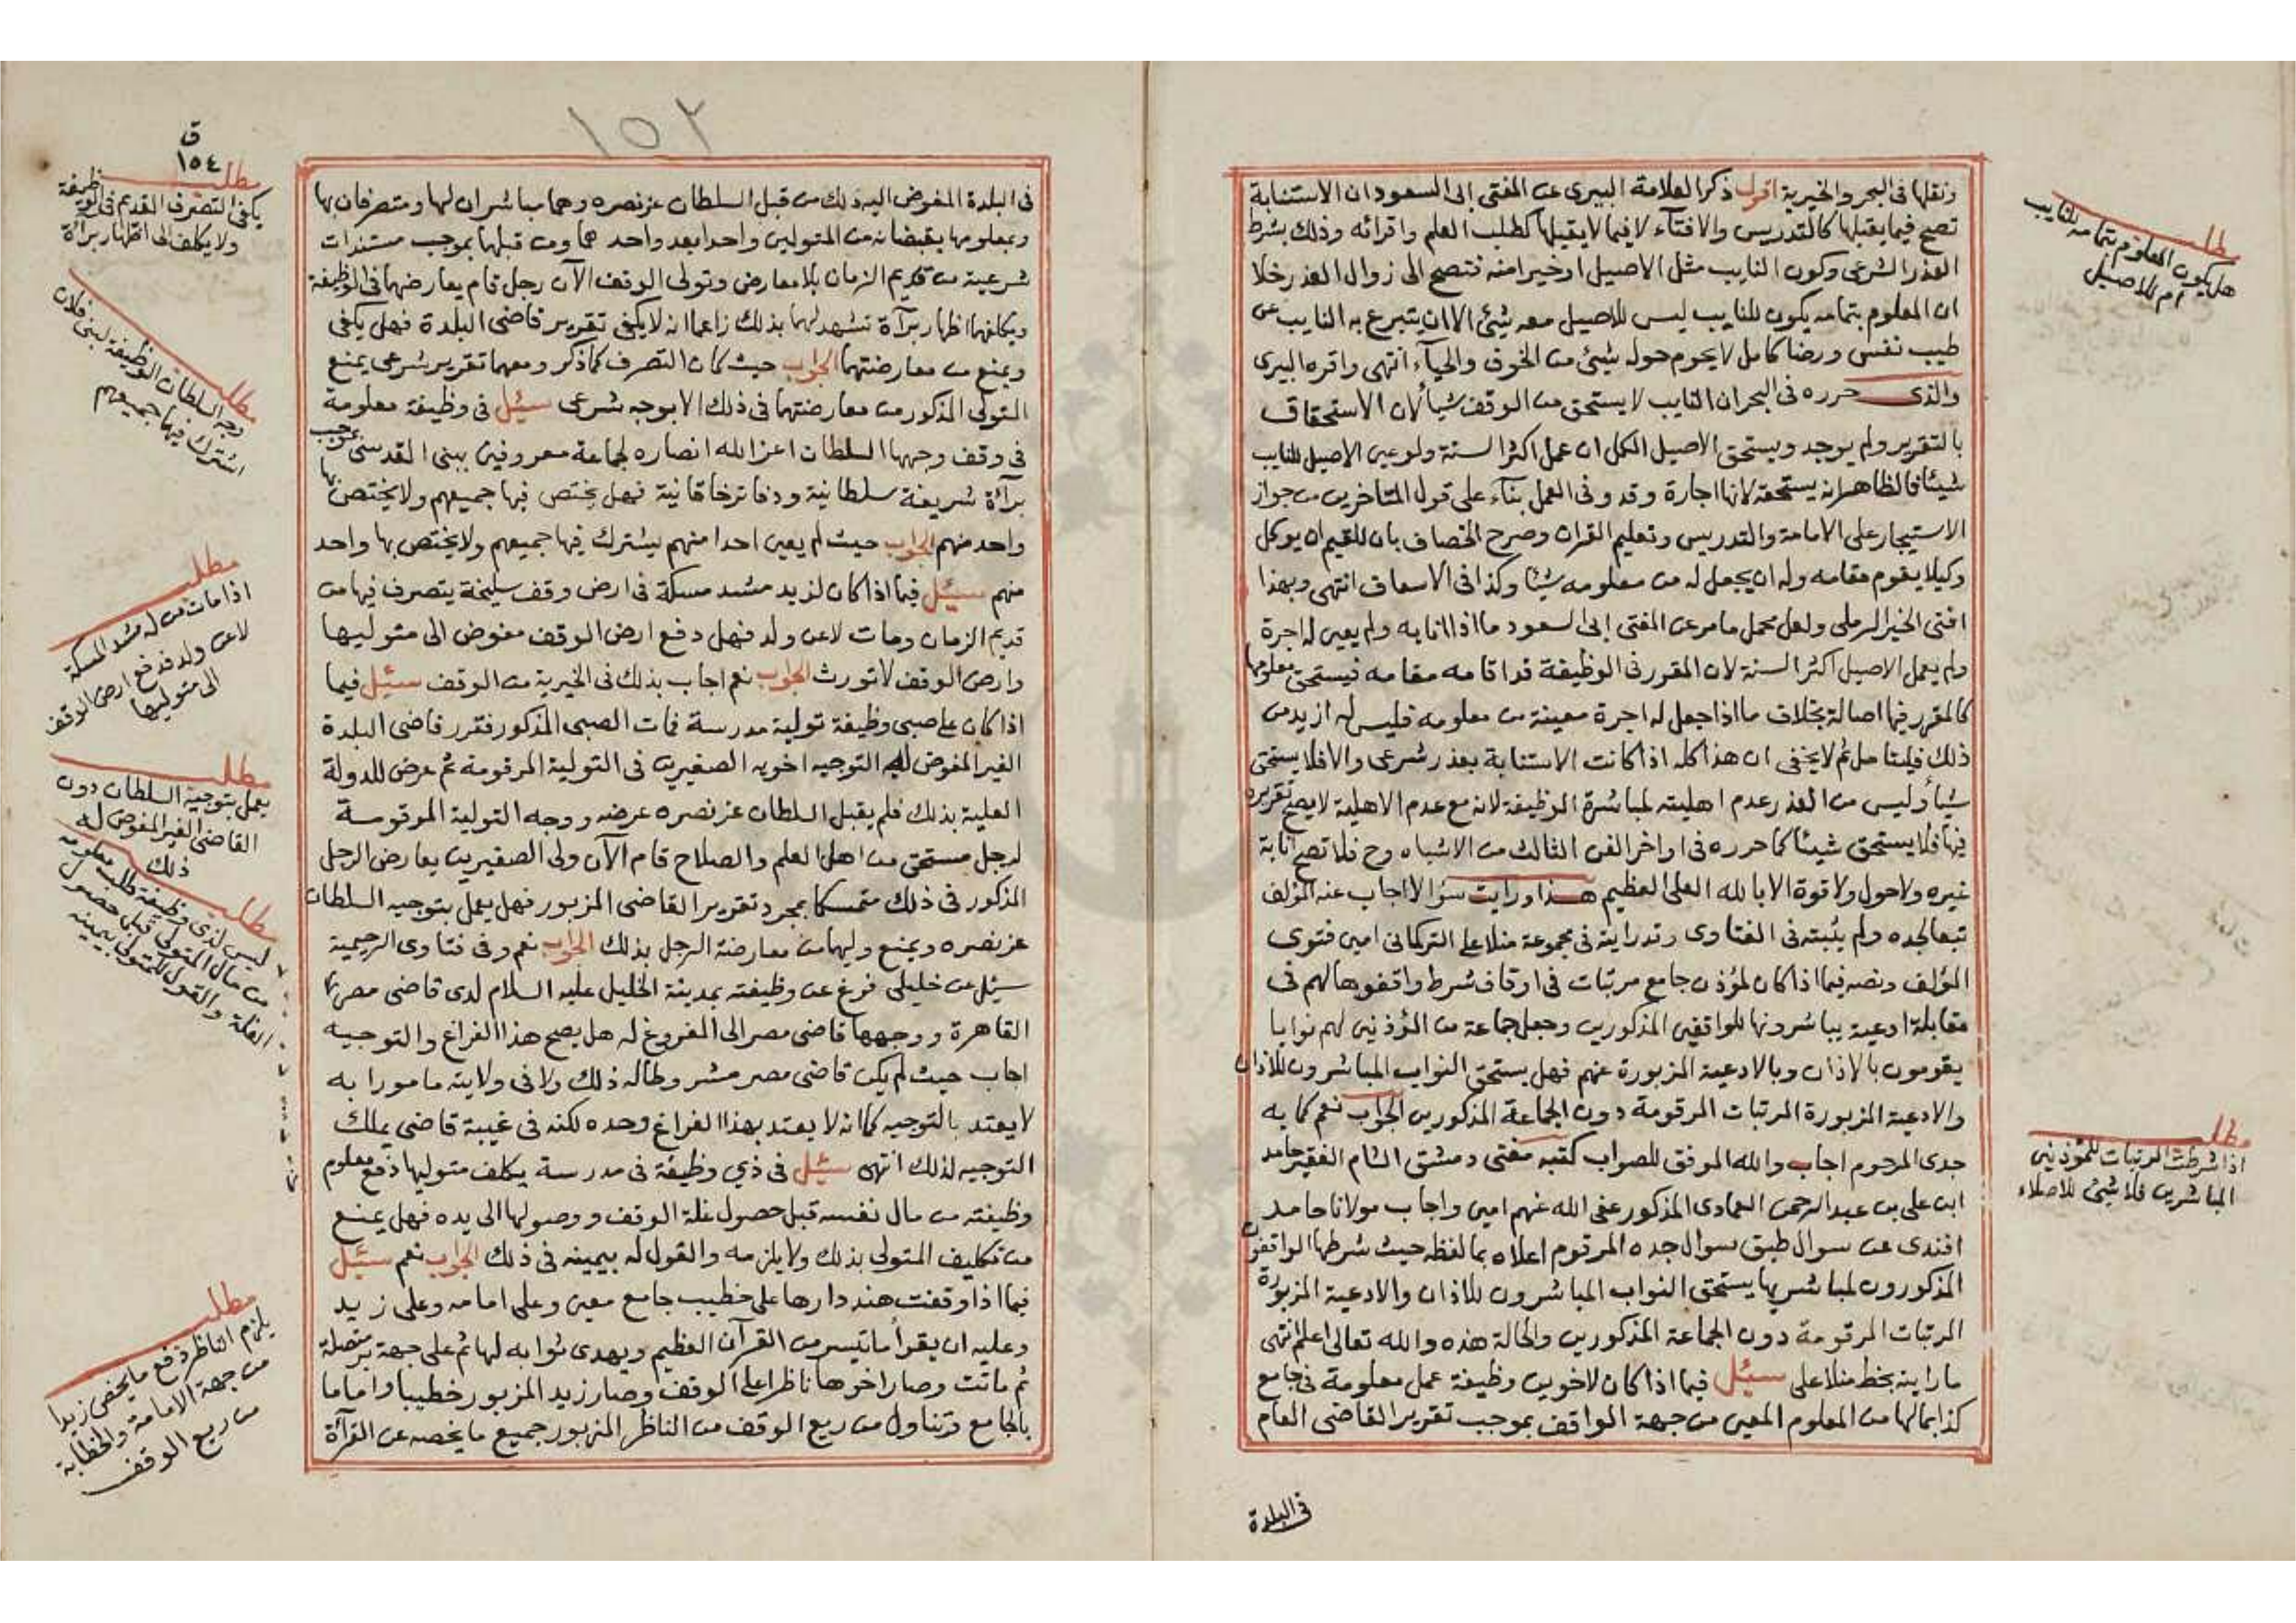 ونقلها فى البحر والخيرية اقول ذكر العلامة البيرى عن المفتى ابى السعود ان الاستنابة
تصح فيما يقبلها كالتدريس والافتآء لا فيما لا يقبلها كطلب العلم واقرائه وذلك بشرط
العذر الشرعى وكون النايب مثل الاصيل او خيرا منه فتصح الى زوال العذر خلا
ان المعلوم بتمامه يكون للنايب ليس للاصيل معه شيئ الا ان يتبرع به النايب عن
طيب نفس ورضا كامل لا يحوم حوله شيئ من الخوف والحيآء انتهى واقره البيرى
والذى حرره فى البحر ان النايب لا يستحق من الوقف شيأ لان الاستحقاق
بالتقرير ولم يوجد ويستحق الاصيل الكل ان عمل اكثر السنة ولو عين الاصيل للنايب
شيئا فالظاهر انه يستحقه لانها اجارة وقد وفى العمل بنآء على قول المتاخرين من جواز
الاستيجار على الامامة والتدريس وتعليم القران وصرح الخصاف بان للقيم ان يوكل
وكيلا يقوم مقامه وله ان يجعل له من معلومه شيئا وكذا فى الاسعاف انتهى وبهذا
افتى الخير الرملى ولعل محمل ما مر عن المفتى ابى السعود ما اذا انابه ولم يعين له اجرة
ولم يعمل الاصيل اكثر السنة لان المقرر فى الوظيفة قد اقامه مقامه فيستحق معلومها
كالمقرر فيها اصالة بخلاف ما اذا جعل له اجرة معينة من معلومه فليس له ازيد من
ذلك فليتامل ثم لا يخفى ان هذا كله اذا كانت الاستنابة بعذر شرعى والا فلا يستحق
شيأ وليس من العذر عدم اهليته لمباشرة الوظيفة لانه مع عدم الاهلية لا يصح تقريره
فيها فلا يستحق شيئا كما حرره فى اواخر الفن الثالث من الاشباه وح فلا تصح انابة
غيره ولا حول ولا قوة الا بالله العلى العظيم هذا ورايت سؤالا اجاب عنه المؤلف
تبعا لجده ولم يثبته فى الفتاوى وقد رايته فى مجموعة منلا على التركمانى امين فتوى
المؤلف ونصه فيما اذا كان لمؤذن جامع مرتبات فى اوقاف شرط واقفوها لهم فى
مقابلة ادعية يباشرونها للواقفين المذكورين وجعل جماعة من المؤذنين لهم نوابا
يقومون بالاذان وبالادعية المزبورة عنهم فهل يستحق النواب المباشرون للاذان
والادعية المزبورة المرتبات المرقومة دون الجماعة المذكورين الجواب نعم كما به
جدى المرحوم اجاب والله الموفق للصواب كتبه مفتى دمشق الشام الفقير حامد
ابن على بن عبد الرحمن العمادى المذكور عفى الله عنهم امين واجاب مولانا حامد
افندى عن سوال طبق سوال جده المرقوم اعلاه بما لفظه حيث شرطها الواقفون
المذكورون لمباشريها يستحق النواب المباشرون للاذان والادعية المزبورة
المرتبات المرقومة دون الجماعة المذكورين والحالة هذه والله تعالى اعلم انتهى
ما رايته بخط منلا على سئيل فيما اذا كان لاخوين وظيفة عمل معلومة فى جامع
كذا بمالها من المعلوم المعين من جهة الواقف بموجب تقرير القاضى العام
فى البلدة
مطلب
هل يكون المعلوم بتمامه للنايب
ام للاصيل
مطلب
اذا شرطت المرتبات للمؤذنين
المباشرين فلا شيئ للاصلاء
١٥٢
فى البلدة المفوض اليه ذلك من قبل السلطان عز نصره وهما مباشران لها ومتصرفان بها
وبمعلومها يقبضانه من المتولين واحدا بعد واحد هما ومن قبلهما بموجب مستندات
شرعية من قديم الزمان بلا معارض وتولى الوقف الآن رجل قام يعارضهما فى الوظيفة
ويكلفهما اظهار برآة تشهد لهما بذلك زاعما انه لا يكفى تقرير قاضى البلدة فهل يكفى
ويمنع من معارضتهما الجواب حيث كان التصرف كما ذكر ومعهما تقرير شرعى يمنع
المتولى المذكور من معارضتهما فى ذلك الا بوجه شرعى سئيل فى وظيفة معلومة
فى وقف وجهها السلطان اعز الله انصاره لجماعة معروفين ببنى القدسى بموجب
برآة شريفة سلطانية ودفاتر خاقانية فهل يختص فيها جميعهم ولا يختص بها
واحد منهم الجواب حيث لم يعين احدا منهم يشترك فيها جميعهم ولا يختص بها واحد
منهم سئيل فيما اذا كان لزيد مشد مسكة فى ارض وقف سليخة يتصرف فيها من
قديم الزمان ومات لا عن ولد فهل دفع ارض الوقف مفوض الى متوليها
وارض الوقف لا تورث الجواب نعم اجاب بذلك فى الخيرية من الوقف سئيل فيما
اذا كان على صبى وظيفة تولية مدرسة فمات الصبى المذكور فقرر قاضى البلدة
الغير المفوض له التوجيه اخويه الصغيرين فى التولية المرقومة ثم عرض للدولة
العلية بذلك فلم يقبل السلطان عز نصره عرضه ووجه التولية المرقومة
لرجل مستحق من اهل العلم والصلاح قام الآن ولى الصغيرين يعارض الرجل
المذكور فى ذلك متمسكا بمجرد تقرير القاضى المزبور فهل يعمل بتوجيه السلطان
عز نصره ويمنع وليهما من معارضة الرجل بذلك الجواب نعم وفى فتاوى الرحيمية
سئيل عن خليلى فرغ عن وظيفته بمدينة الخليل عليه السلام لدى قاضى مصر
القاهرة ووجهها قاضى مصر الى المفروغ له هل يصح هذا الفراغ والتوجيه
اجاب حيث لم يكن قاضى مصر مشروطا له ذلك ولا فى ولايته مامورا به
لا يعتد بالتوجيه كما انه لا يعتد بهذا الفراغ وحده لكنه فى غيبة قاضى يملك
التوجيه لذلك انتهى سئيل فى ذي وظيفة فى مدرسة يكلف متوليها دفع معلوم
وظيفته من مال نفسه قبل حصول غلة الوقف ووصولها الى يده فهل يمنع
من تكليف المتولى بذلك ولا يلزمه والقول له بيمينه فى ذلك الجواب نعم سئيل
فيما اذا وقفت هند دارها على خطيب جامع معين وعلى امامه وعلى زيد
وعليه ان يقرأ ما تيسر من القرآن العظيم ويهدى ثوابه لها ثم على جهة بر متصلة
ثم ماتت وصار اخوها ناظرا على الوقف وصار زيد المزبور خطيبا واماما
بالجامع وتناول من ريع الوقف من الناظر المزبور جميع ما يخصه عن القرآة
ق
١٥٤
مطلب
يكفى التصرف القديم فى الوظيفة
ولا يكلف الى اظهار برآة
مطلب
وجه السلطان الوظيفة لبنى فلان
اشترك فيها جميعهم
مطلب
اذا مات من له مشد المسكة
لا عن ولد فدفع ارض الوقف
الى متوليها
مطلب
يعمل بتوجيه السلطان دون
القاضى الغير المفوض له
ذلك
مطلب
ليس لذى وظيفة طلب معلومه
من مال المتولى قبل حصول
الغلة والقول للمتولى بيمينه
مطلب
يلزم الناظر دفع ما يخص زيدا
من جهة الامامة والخطابة
من ريع الوقف